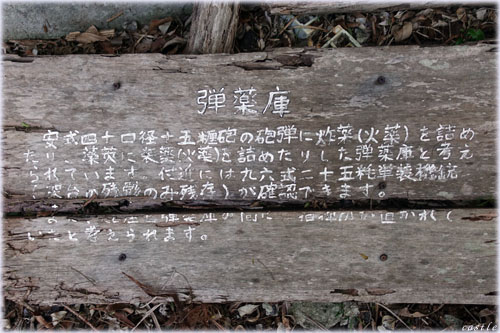 弾薬庫
安式四十口径十五糎砲の砲弾に炸薬(火薬)を詰め
たり、薬莢に装薬(火薬)を詰めたりした弾薬庫と考え
られています。付近には九六式二十五粍単装機銃
残存)が確認できます。
いたと考えられます。
castle